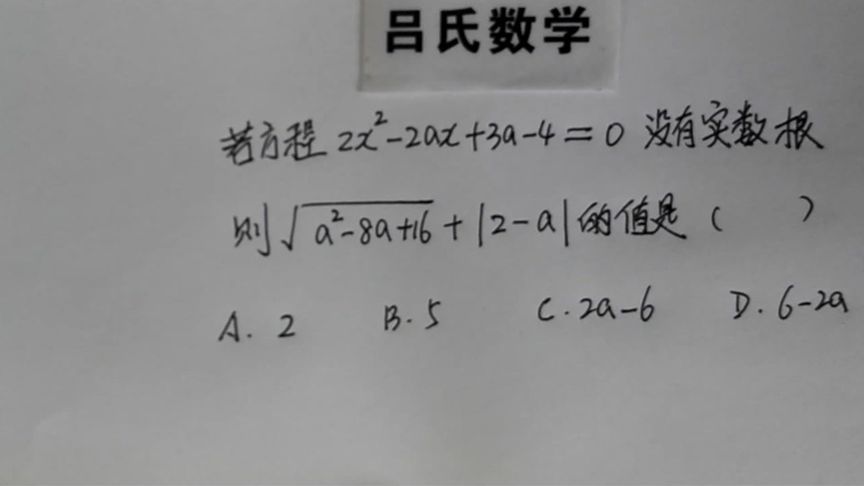 吕氏数学
若方程 2x²-2ax+3a-4=0 没有实数根
则√(a²-8a+16)+|2-a|的值是（ ）
A. 2 B. 5 C. 2a-6 D. 6-2a